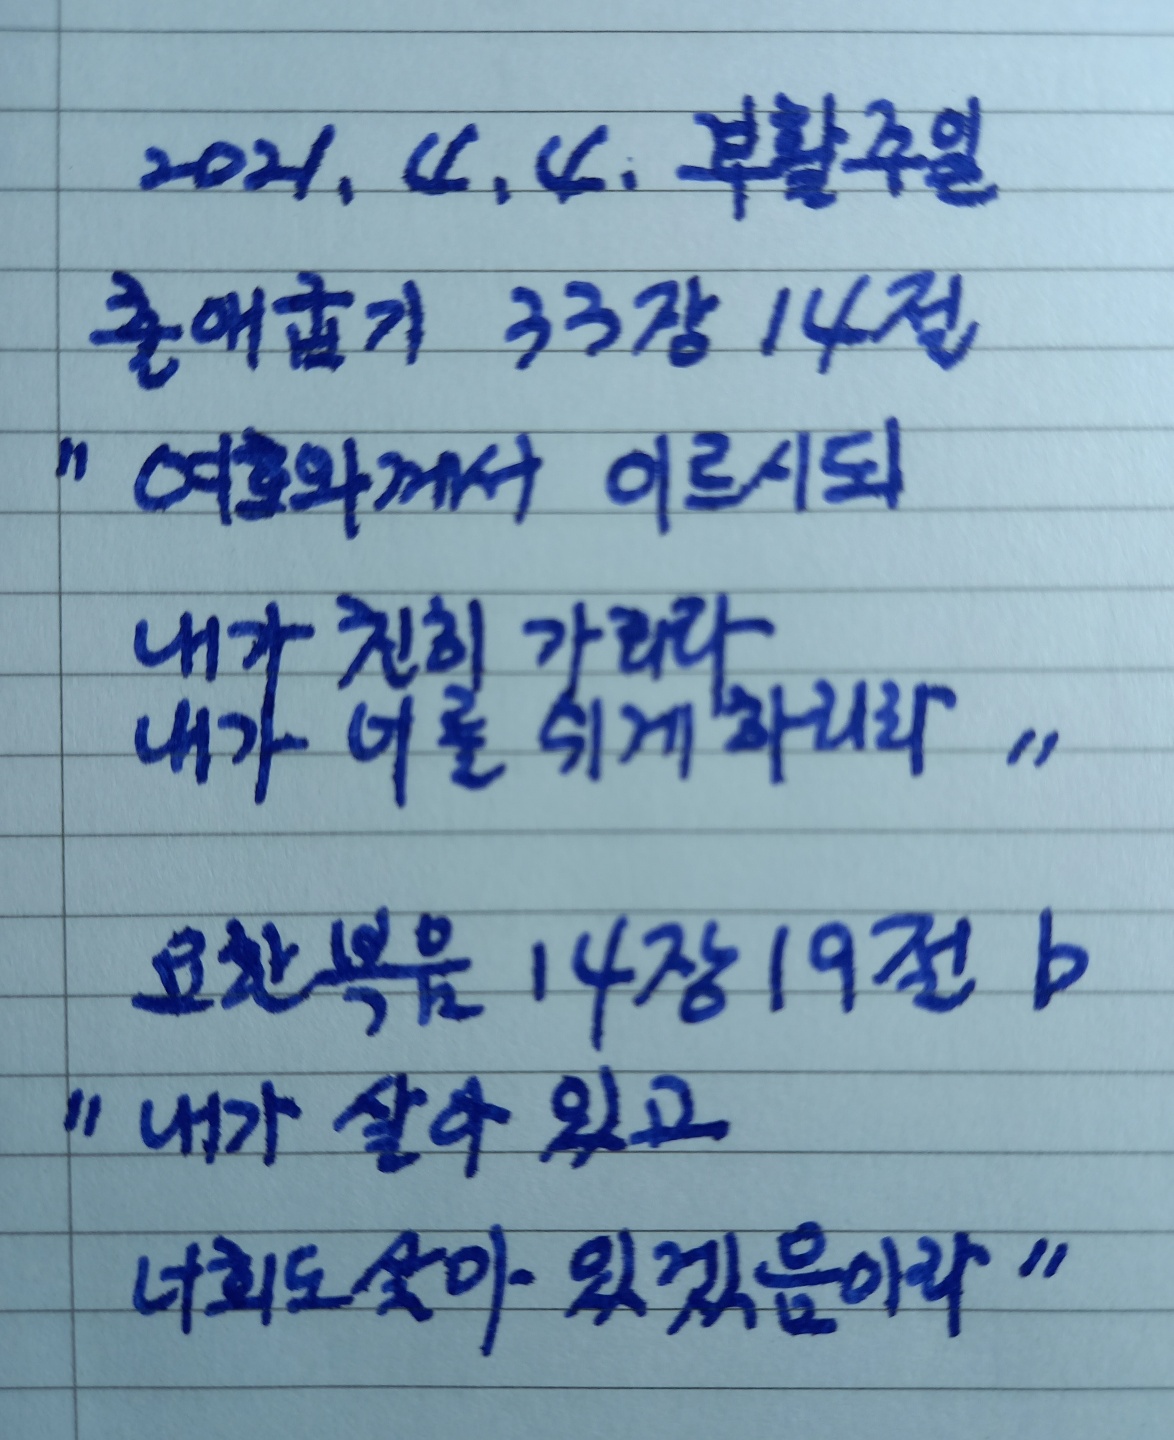 2021. 4. 4. 부활주일
출애굽기 33장 14절
" 여호와께서 이르시되
내가 친히 가리라
내가 너를 쉬게 하리라 "
요한복음 14장 19절 b
" 내가 살아 있고
너희도 살아 있겠음이라 "